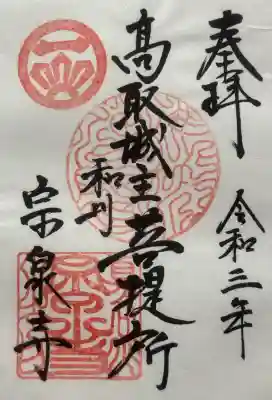 奉拝
令和三年
高取城主菩提所
和州
宗泉寺